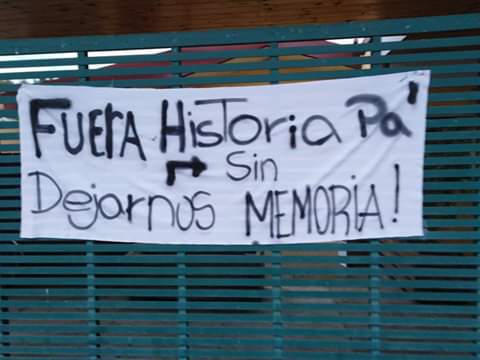 FUErA HisToria Pa'
Sin
Dejarnos MEMORIA!